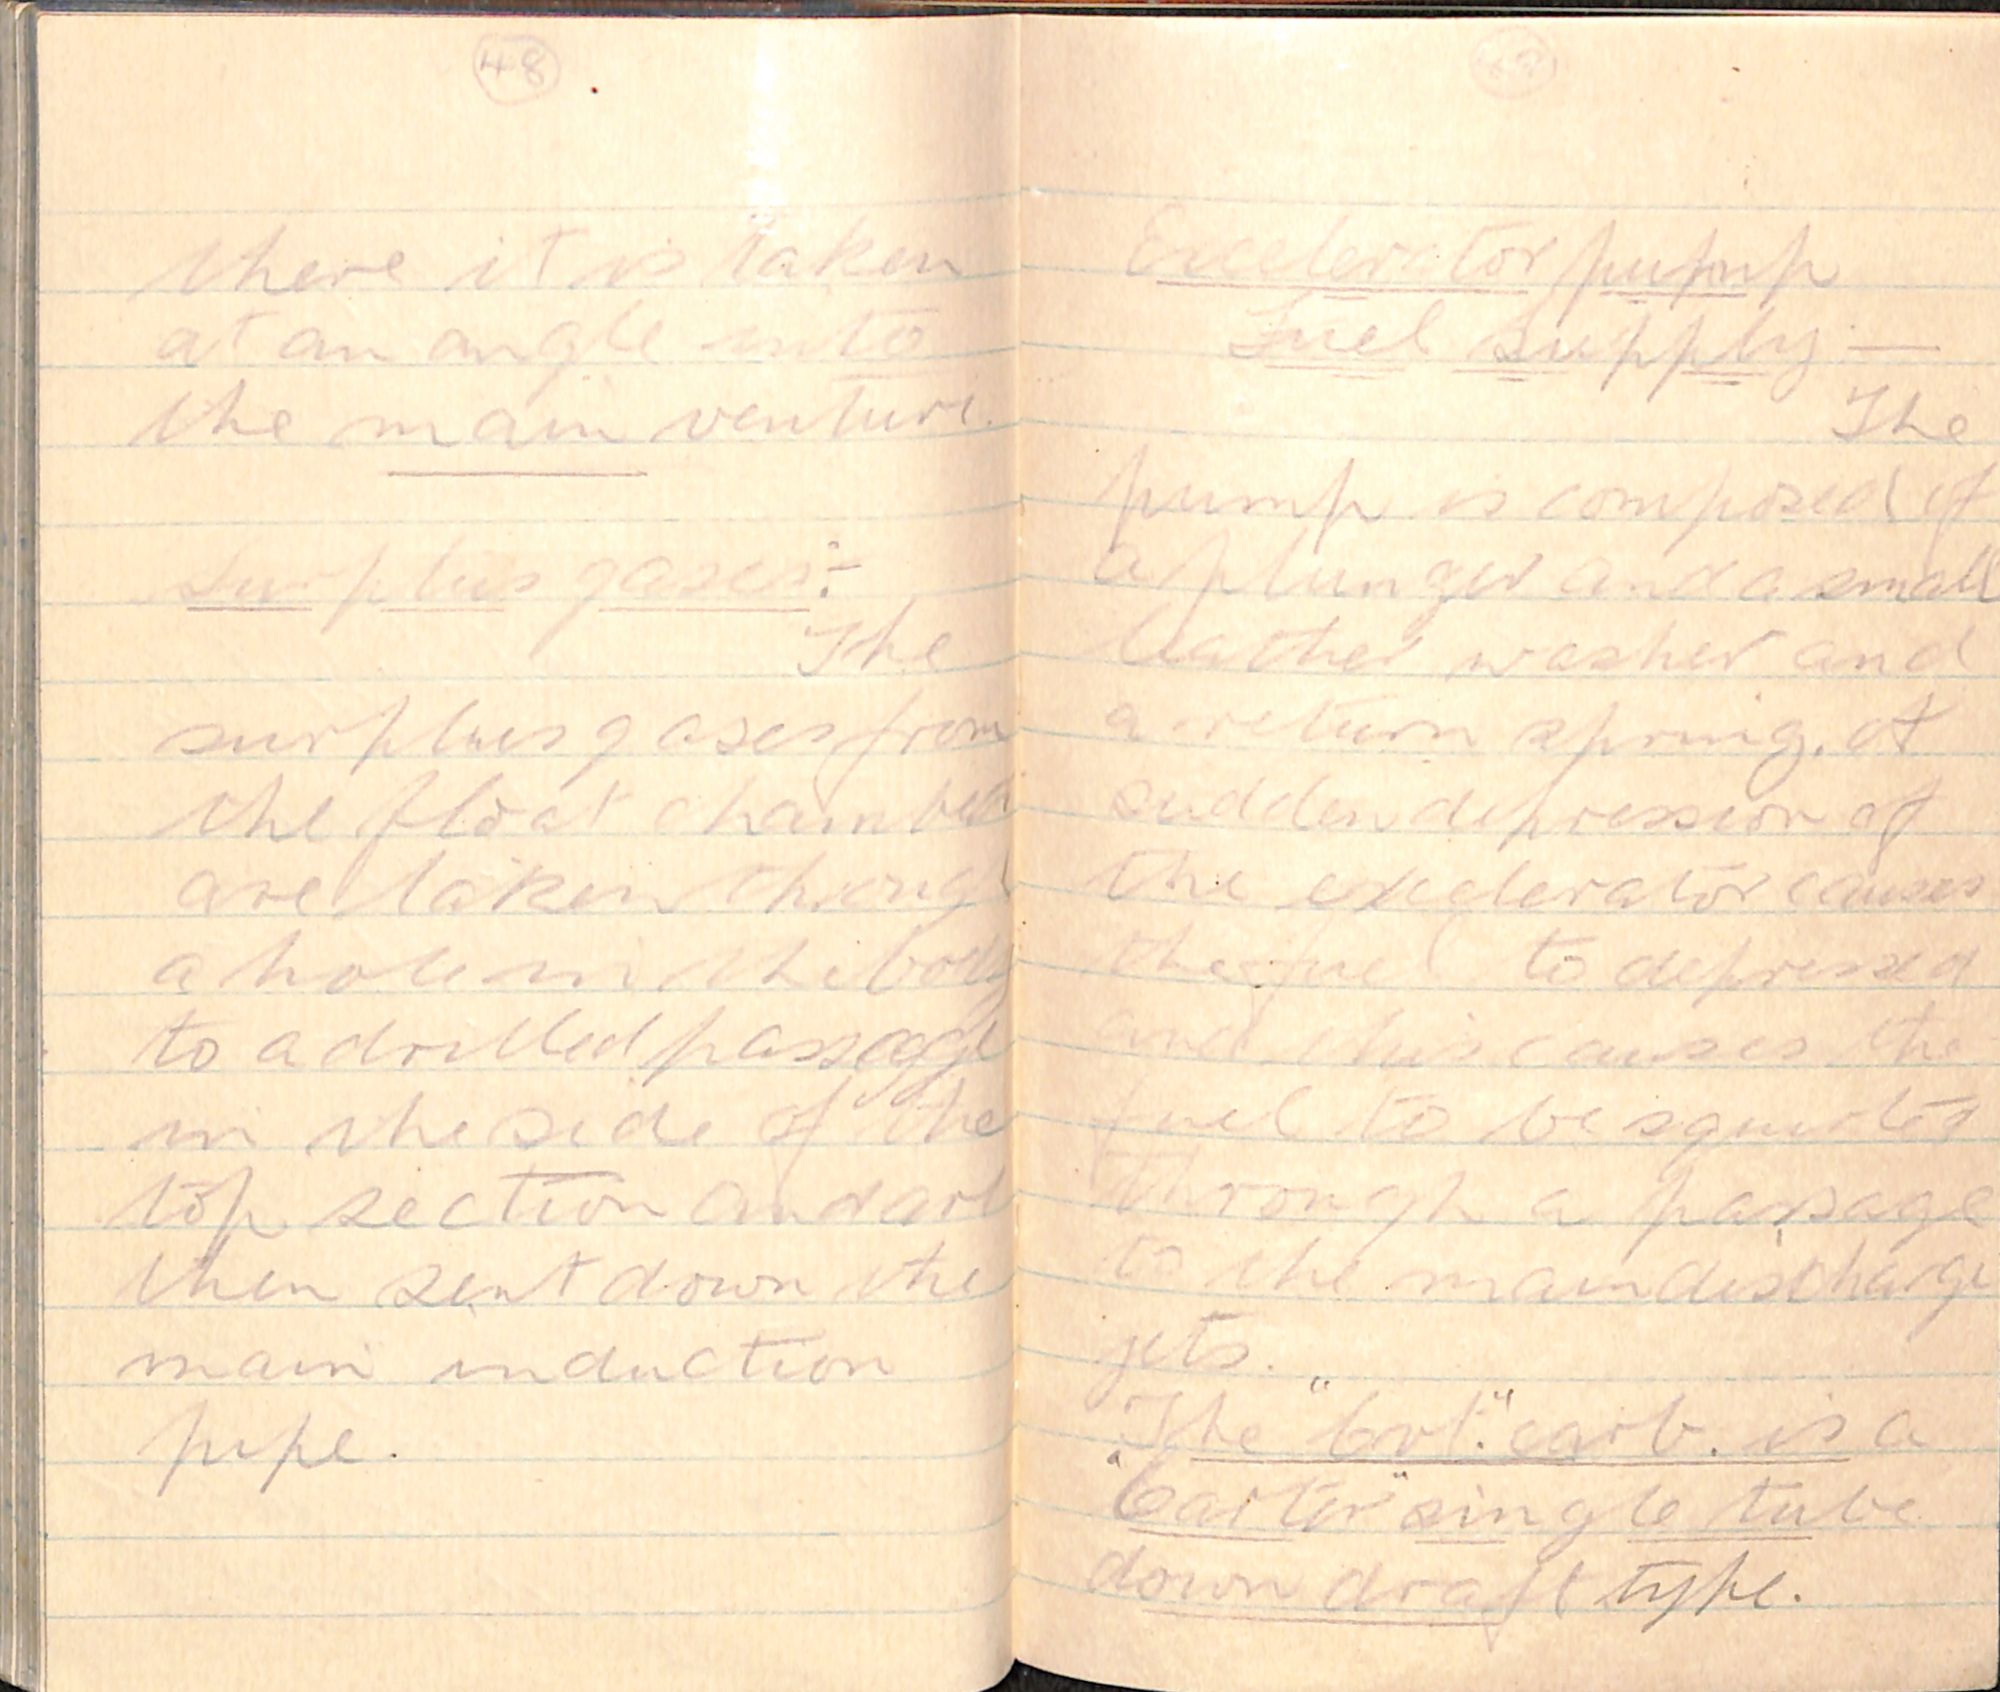 48
there it is taken
at an angle into
the main venturi.
Surplus gases:-
The
surplus gases from
the float chamber
are taken through
a hole in the body
to a drilled passage
in the side of the
top section and are
then sent down the
main induction
pipe.
Excelerator pump
Fuel Supply —
The
pump is composed of
a plunger and a small
leather washer and
a return spring. A
sudden depression of
the excelerator causes
the fuel to depressed
and this causes the
fuel to be squirted
through a passage
to the main discharge
jets.
The "Cvt." carb. is a
"Carter" single tube
down draft type.